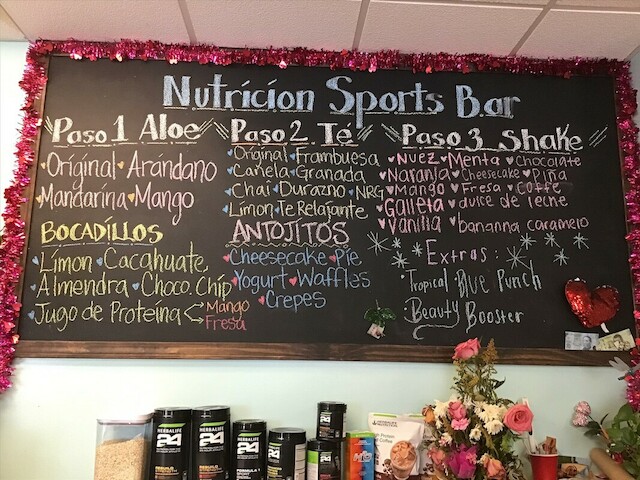 Nutricion Sports Bar
Paso 1 Aloe
Original Arándano
Mandarina Mango
BOCADÍLLOS
Límon Cacahuate,
Almendra Choco. Chip
Jugo de Proteína < Mango
Fresa
Paso 2 Té
Original Frambuesa
Canela Granada
Chai Durazno NRG
Limon Te Relajante
ANTOJITOS
Cheesecake Pie
Yogurt Waffles
Crepes
Paso 3 Shake
Nuez Menta Chocolate
Naranja Cheesecake Piña
Mango Fresa Coffe
Galleta dulce de leche
Vanilla bananna caramelo
Extras:
Tropical Blue Punch
Beauty Booster
HERBALIFE
24
HERBALIFE
24
HERBALIFE
24
FORMULA 1
HERBALIFE
24
HERBALIFE
24